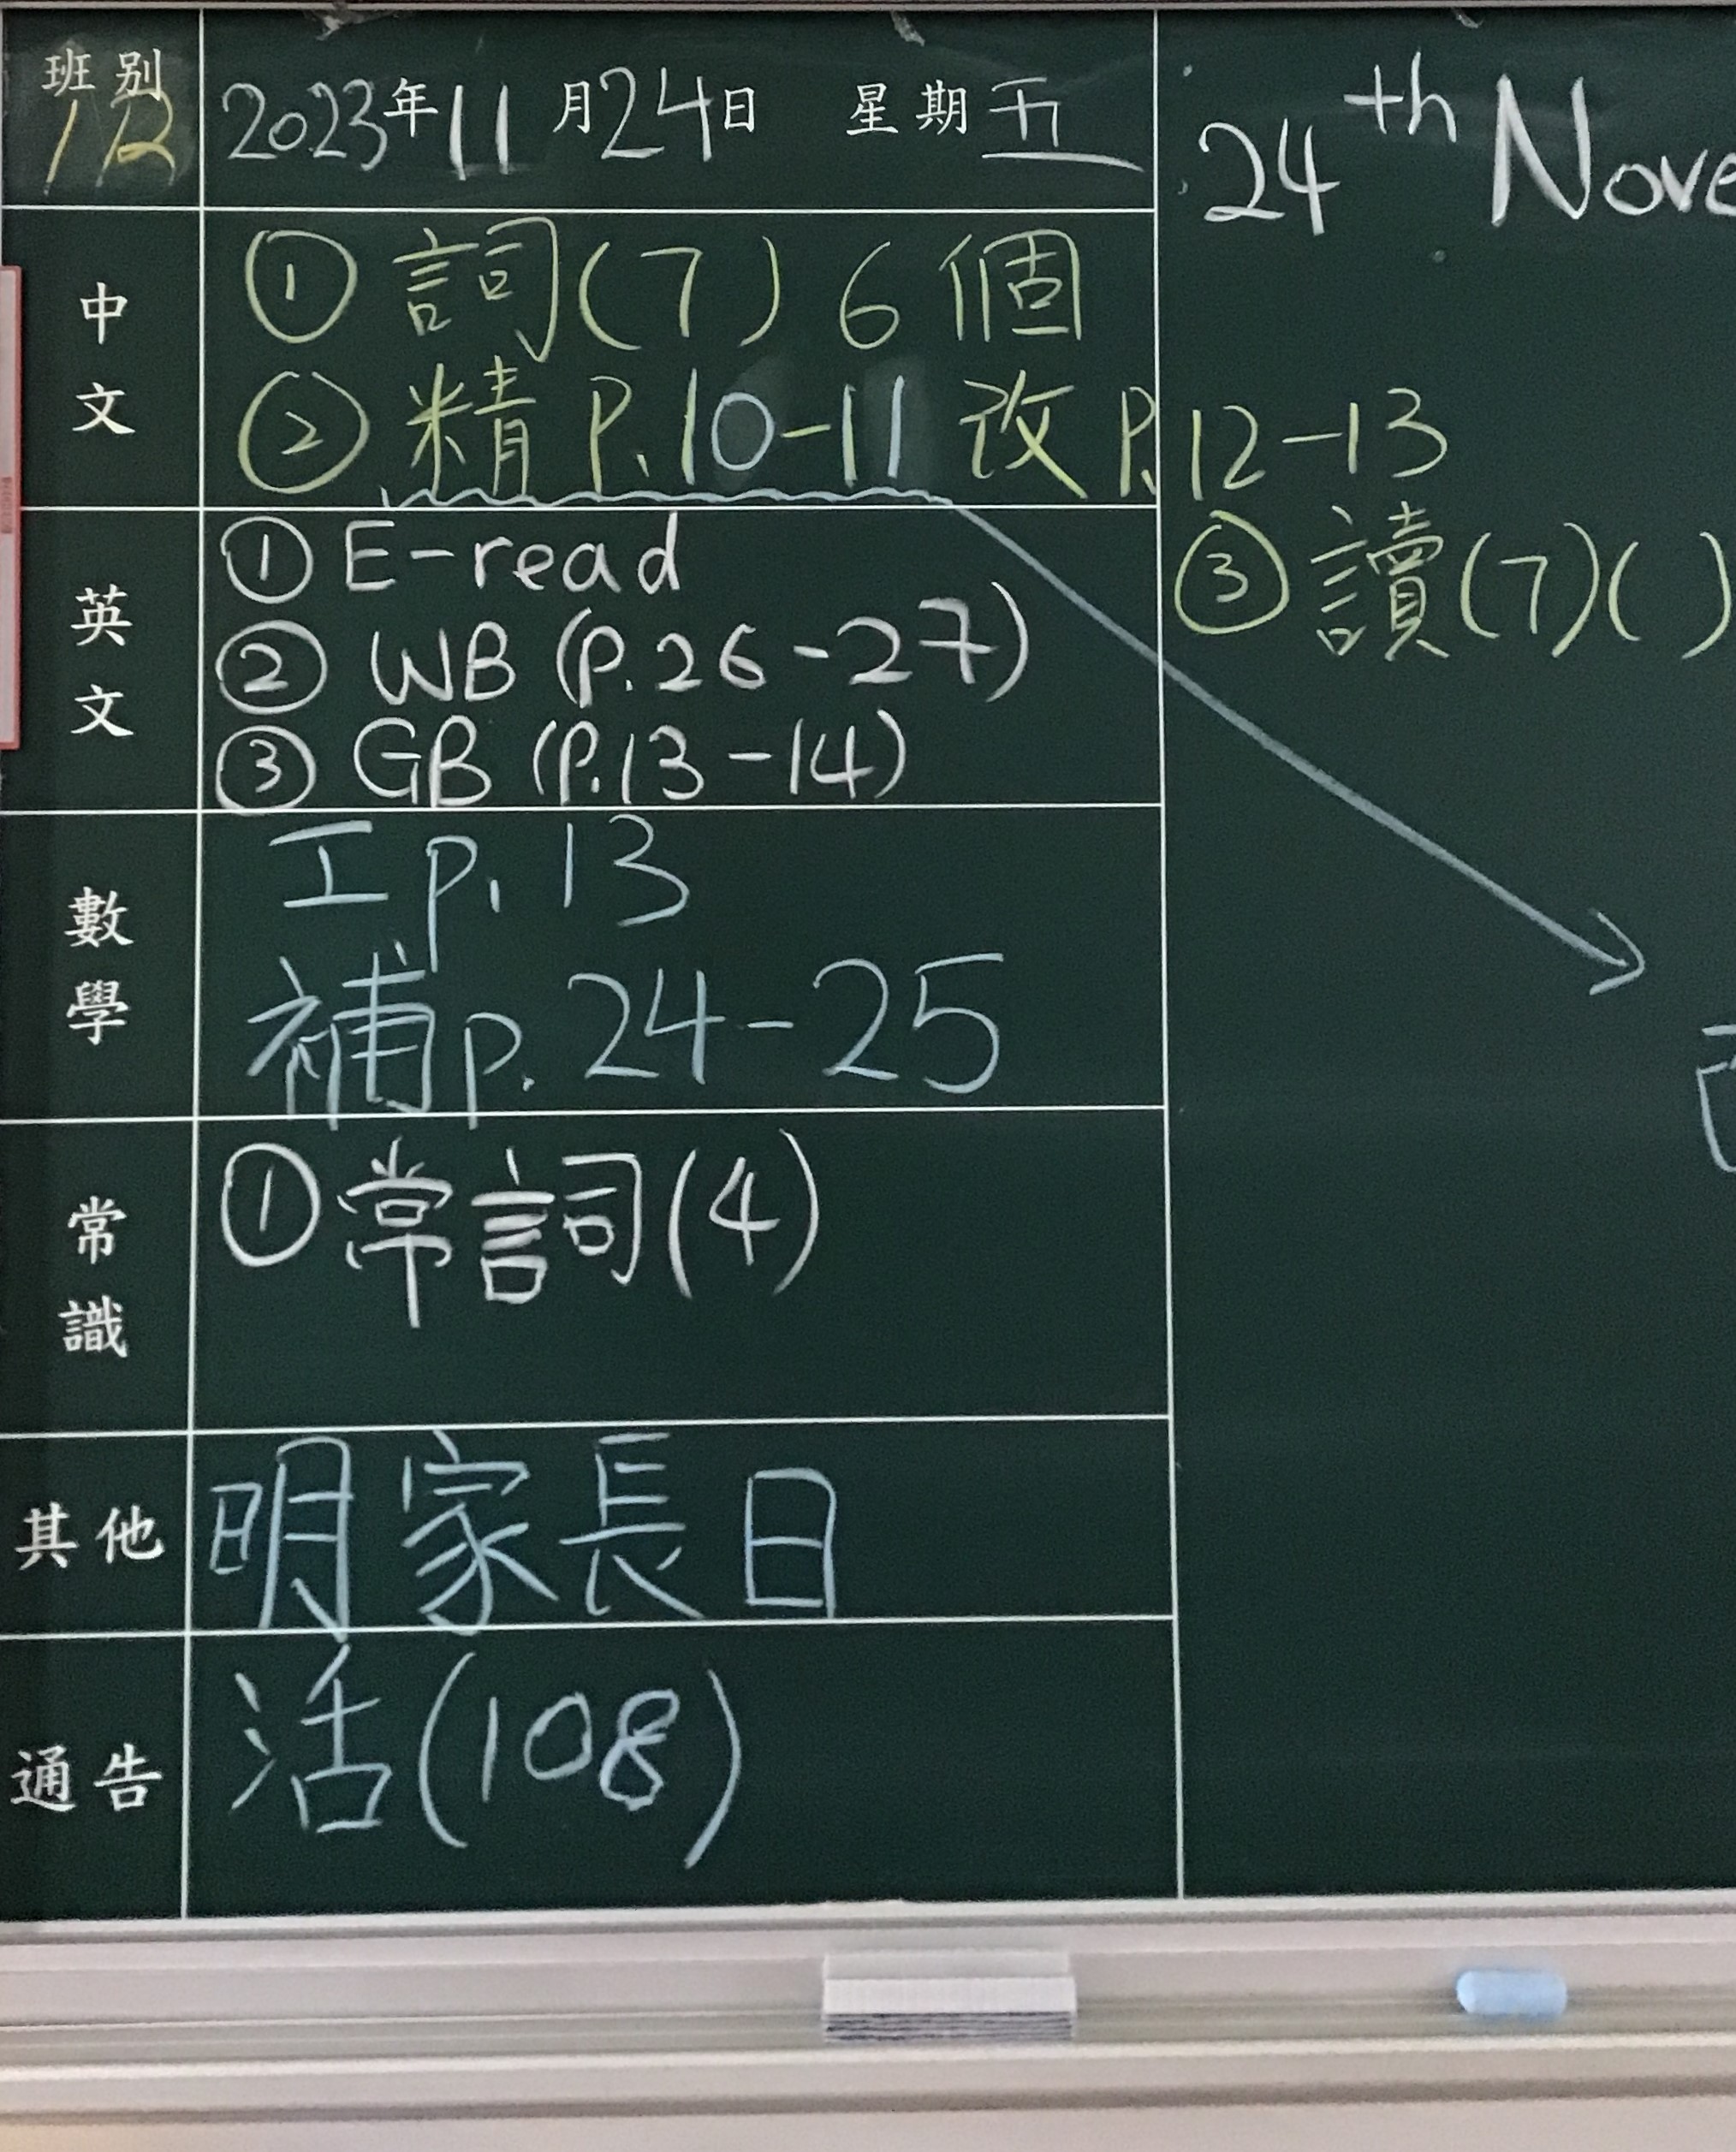 班別
2023年11月24日 星期五
24th Nove
中文
① 詞(7) 6個
② 精 P.10-11 改 P.12-13
③ 讀(7)( )
英文
① E-read
② WB (P.26-27)
③ GB (P.13-14)
數學
工 p. 13
補 p. 24-25
常識
① 常詞(4)
其他
明家長日
通告
活(108)